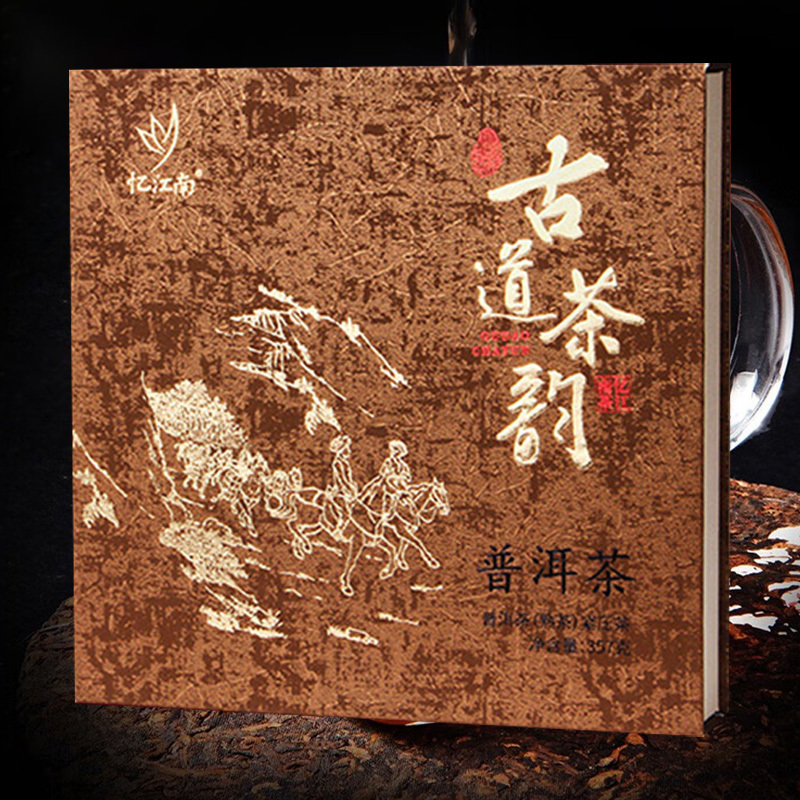 忆江南®
古道
茶韵
GUDAO
CHAYUN
忆江
南茶
普洱茶
普洱茶(熟茶)紧压茶
净含量:357克